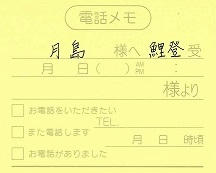 電話メモ
月島 様へ 鯉登 受
月 日( ) AM PM :
様より
お電話をいただきたい
TEL.
また電話します
月 日 時頃
お電話がありました